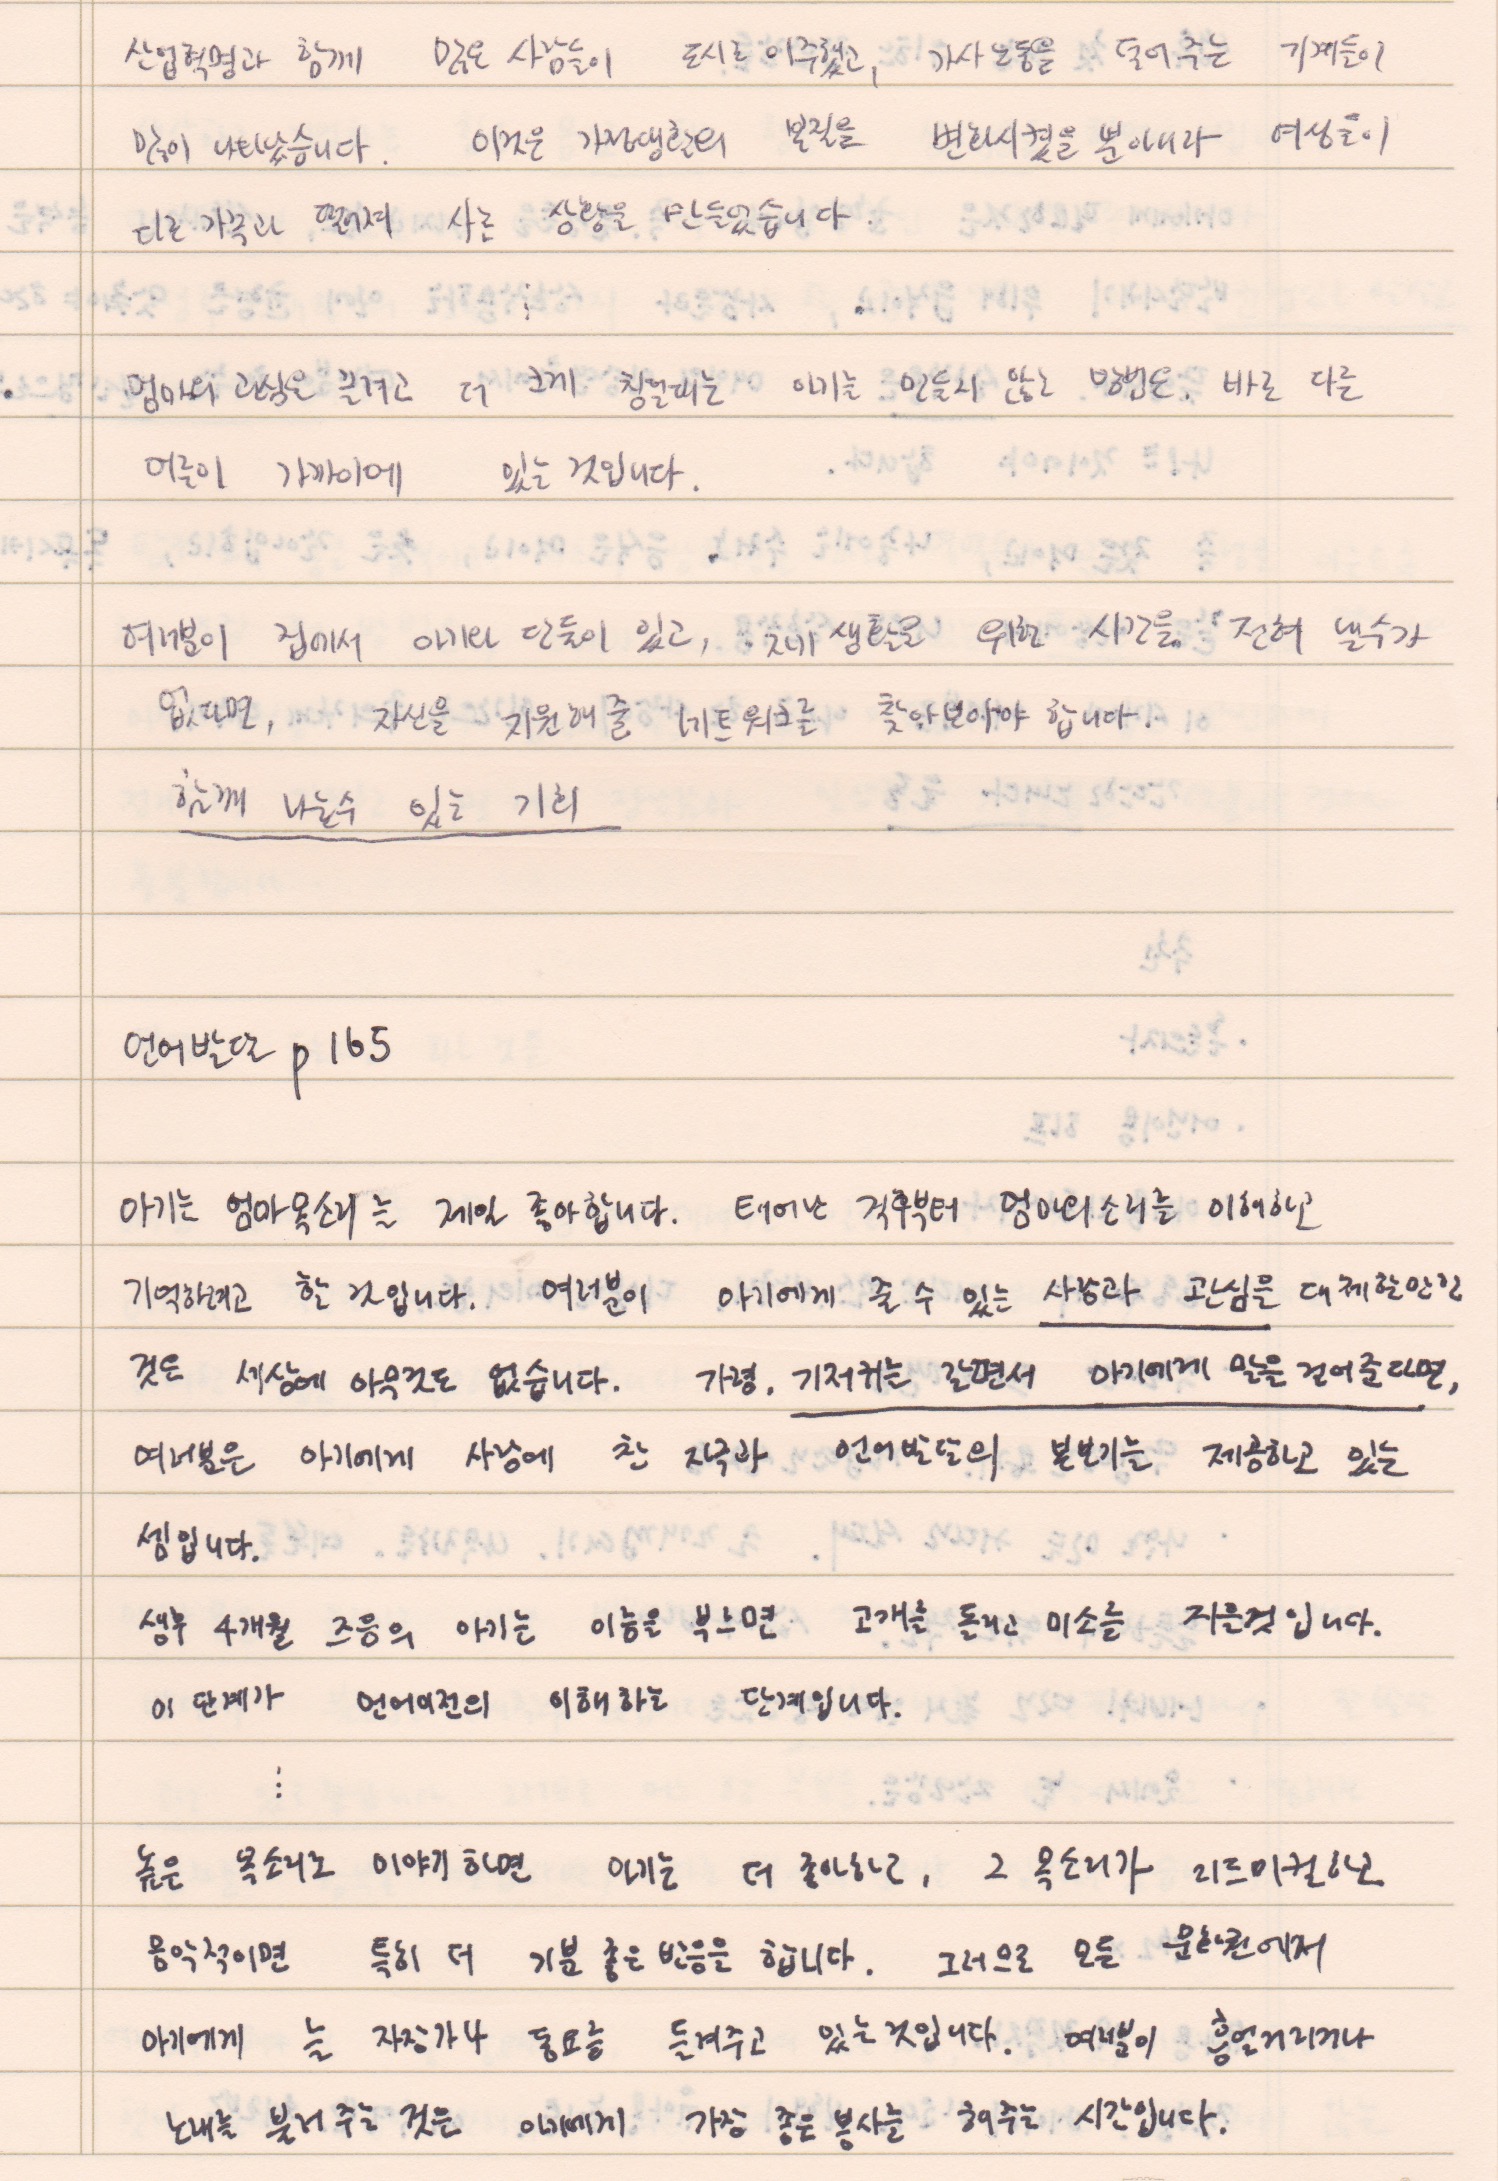 산업혁명과 함께 많은 사람들이 도시로 이주했고, 가사노동을 덜어주는 기계들이
많이 나타났습니다. 이것은 가정생활의 본질을 변화시켰을 뿐아니라 여성들이
다른 가족과 떨어져 사는 상황을 만들었습니다.
⋮
엄마의 관심을 끌려고 더 크게 칭얼대는 아기를 만들지 않는 방법은, 바로 다른
어른이 가까이에 있는 것입니다.
여러분이 집에서 아기와 단둘이 있고, 자기 생활을 위한 시간을 전혀 낼수가
없다면, 자신을 지원해줄 네트워크를 찾아보아야 합니다.
함께 나눌수 있는 기회
언어발달 p 165
아기는 엄마목소리를 제일 좋아합니다. 태어난 직후부터 엄마의 소리를 이해하고
기억하려고 할 것입니다. 여러분이 아기에게 줄 수 있는 사랑과 관심을 대체할만한
것은 세상에 아무것도 없습니다. 가령, 기저귀를 갈면서 아기에게 말을 걸어준다면,
여러분은 아기에게 사랑에 찬 자극과 언어발달의 본보기를 제공하고 있는
셈입니다.
생후 4개월 즈음의 아기는 이름을 부르면 고개를 돌리고 미소를 지을것입니다.
이 단계가 언어이전의 이해하는 단계입니다.
⋮
높은 목소리로 이야기하면 아기는 더 좋아하고, 그 목소리가 리드미컬하고
음악적이면 특히 더 기분 좋은 반응을 합니다. 그러므로 모든 문화권에서
아기에게 늘 자장가나 동요를 들려주고 있는것입니다. 여러분이 흥얼거리거나
노래를 불러 주는 것은 아기에게 가장 좋은 봉사를 해주는 시간입니다.